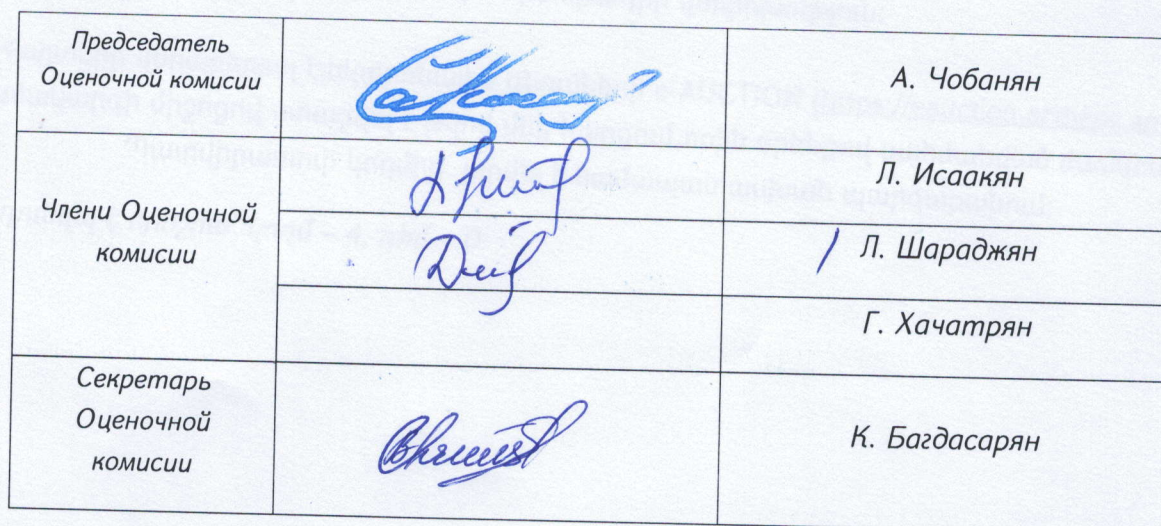 Председатель
Оценочной комисии
А. Чобанян
Члени Оценочной
комисии
Л. Исаакян
Л. Шараджян
Г. Хачатрян
Секретарь
Оценочной
комисии
К. Багдасарян